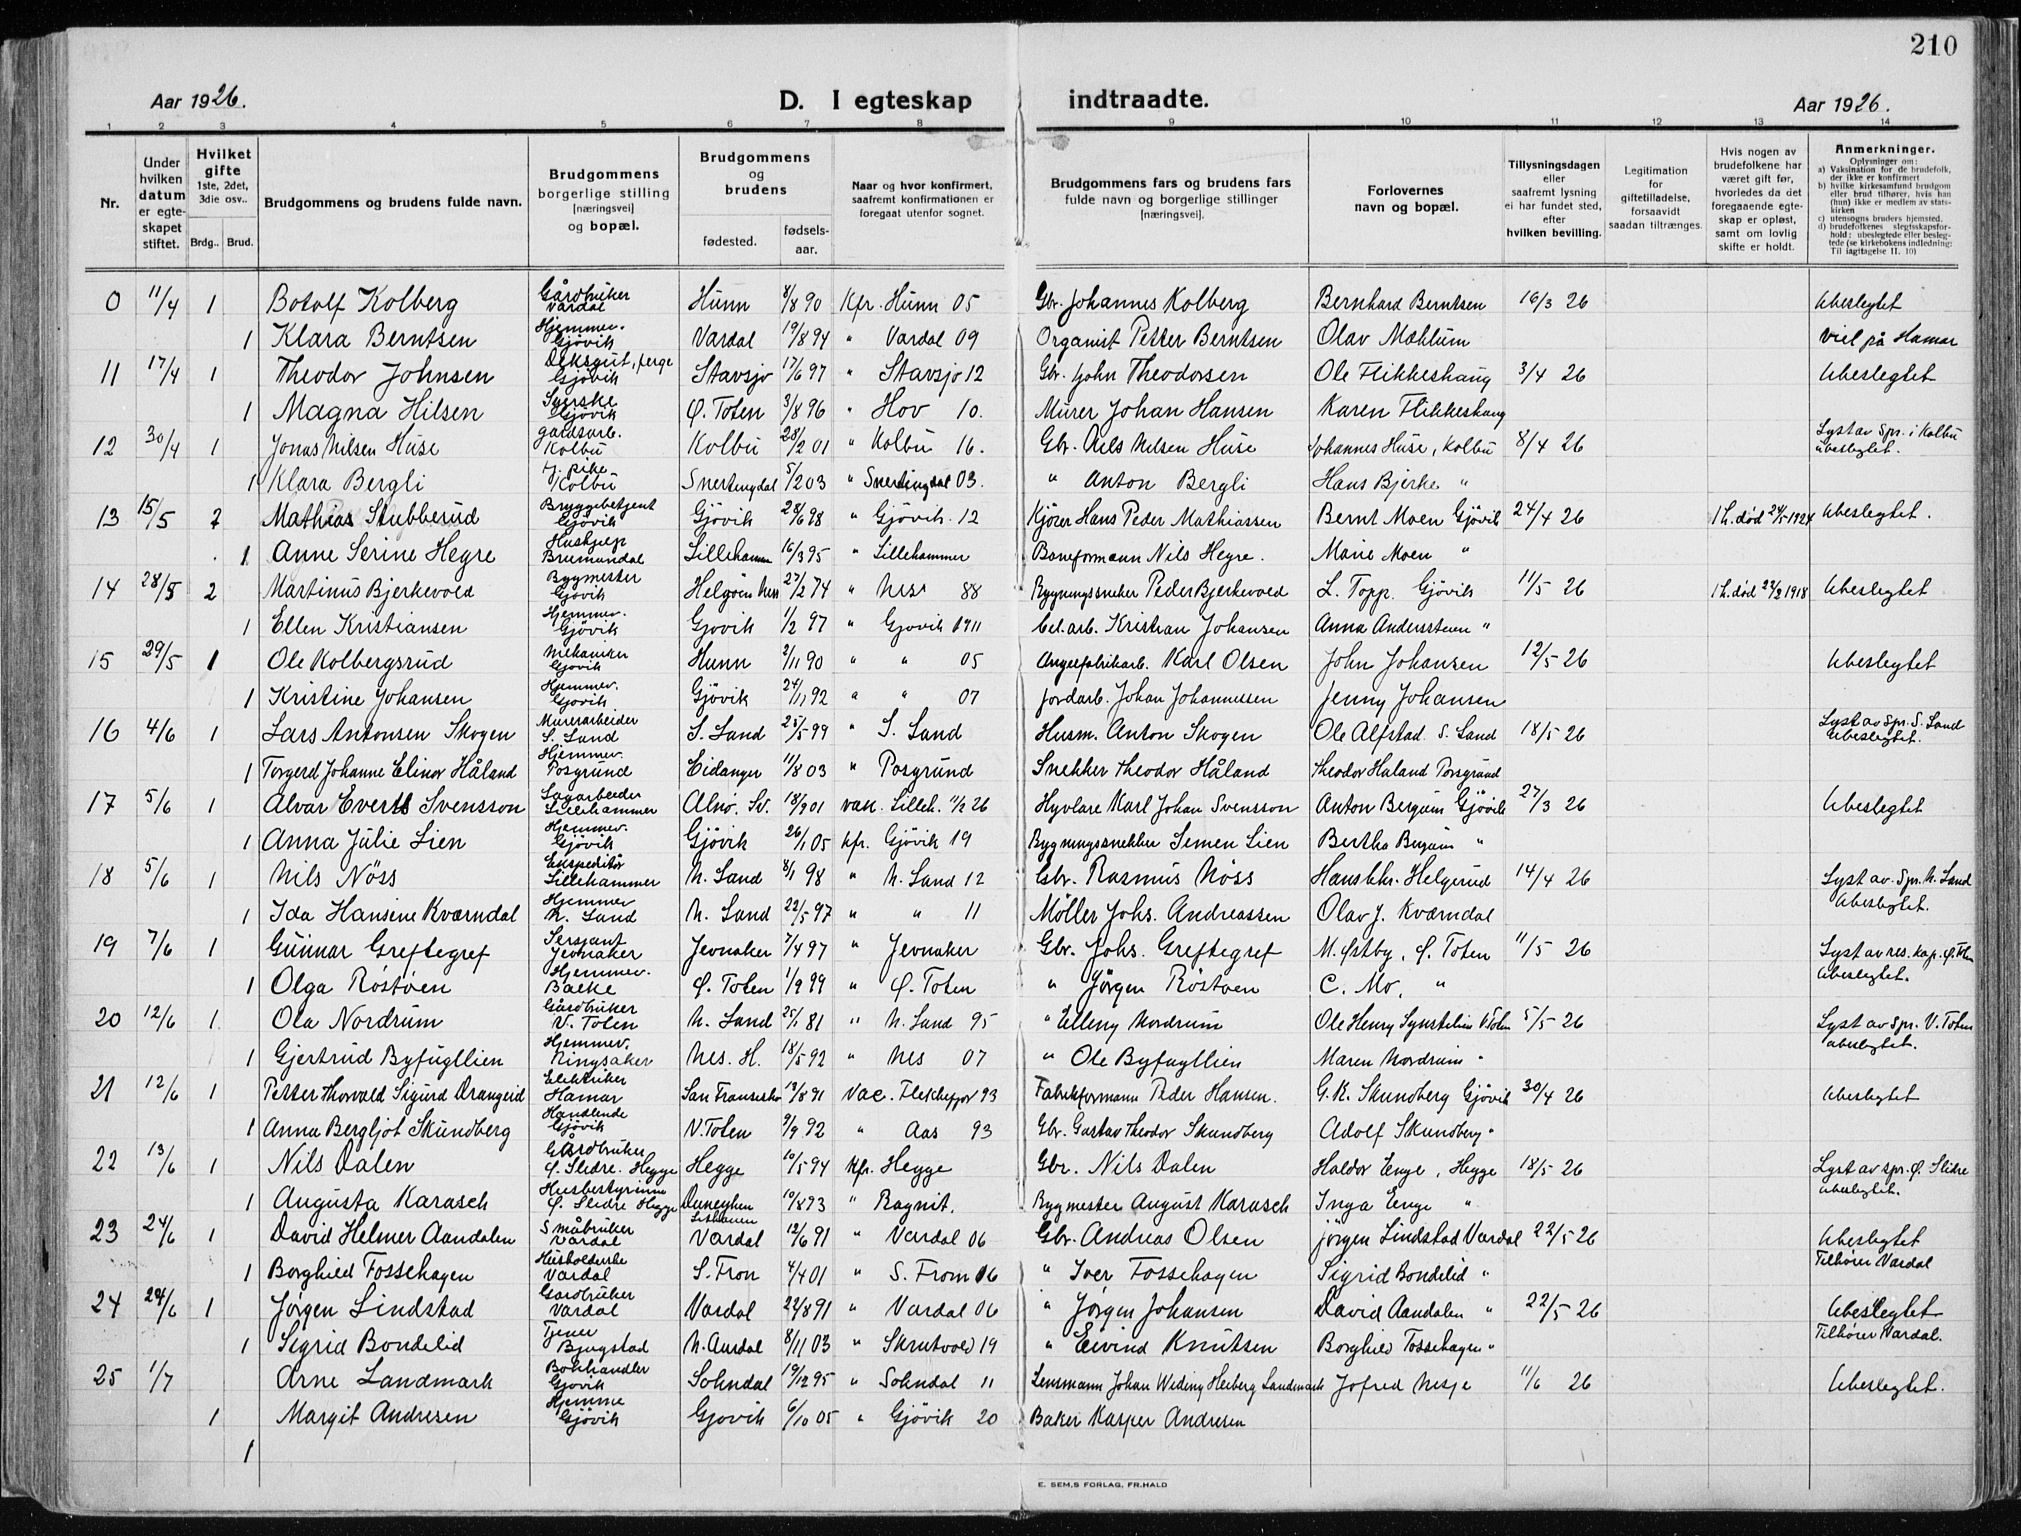 210
Aar 1926.
D. I egteskap indtraadte.
Aar 1926.
1 2 3 4 5 6 7 8 9 10 11 12 13 14
Nr.
Under hvilken datum er egteskapet stiftet.
Hvilket gifte 1ste, 2det, 3die osv..
Brdg.. Brud.
Brudgommens og brudens fulde navn.
Brudgommens borgerlige stilling [næringsvei] og bopæl.
Brudgommens og brudens
fødested.
fødselsaar.
Naar og hvor konfirmert, saafremt konfirmationen er foregaat utenfor sognet.
Brudgommens fars og brudens fars fulde navn og borgerlige stillinger [næringsvei].
Forlovernes navn og bopæl.
Tillysningsdagen eller saafremt lysning ei har fundet sted, efter hvilken bevilling.
Legitimation for giftetilladelse, forsaavidt saadan tiltrænges.
Hvis nogen av brudefolkene har været gift før, hvorledes da det foregaaende egteskap er opløst, samt om lovlig skifte er holdt.
Anmerkninger.
Oplysninger om:
a) Vaksination for de brudefolk, der ikke er konfirmert
b) hvilke kirkesamfund brudgom eller brud tilhører, hvis han (hun) ikke er medlem av statskirken
c) utensogns bruders hjemsted.
d) brudefolkenes slegtsskapsforhold: ubeslegtede eller beslegtede (se kirkebokens indledning: Til iagttagelse II. 10)
0 11/4 1 Botolf Kolberg Gårdbruker Vardal Hunn 8/8 90 Kfr. Hunn 05 Gbr. Johannes Kolberg Bernhard Berntsen 16/3 26 Ubeslegtet
1 Klara Berntsen Hjemmev. Gjövik Vardal 19/8 94 " Vardal 09 Organist Petter Berntsen Olav Mæhlum Viel på Hamar
11 17/4 1 Theodor Johnsen Gjövik Stavsjö 17/6 97 " Stavsjö 12 Gbr. John Theodorsen Ole Flikkeshaug 3/4 26 Ubeslegtet
1 Magna Hilsen Gjövik Ø. Toten 3/8 96 " Hov 10. Murer Johan Hansen Karen Flikkeshaug
12 30/4 1 Jonas Nilsen Huse gardsarb. Kolbu Kolbu 28/2 01 " Kolbu 16. Gbr. Nils Nilsen Huse Johannes Huse, Kolbu 8/4 26 Lyst av Spr. i Kolbu ubeslegtet.
1 Klara Bergli pike Kolbu Snertingdal 5/2 03 " Snertingdal 03. " Anton Bergli Hans Bjerke "
13 15/5 2 Mathias Stubberud Bryggebetjent Gjövik Gjövik 28/6 98 " Gjövik. 12 Kjörer Hans Peder Mathiassen Bernt Moen Gjövik 24/4 26 1 h. död 24/5 1924 Ubeslegtet.
1 Anne Serine Hegre Hushjelp Brumundal Lillehamm 16/3 95 " Lillehammer Baneformann Nils Hegre. Marie Moen "
14 28/5 2 Martinus Bjerkevold Bygmester Gjövik Helgöen Nes 27/2 74 " Nes 88 Bygningssneker Peder Bjerkevold L. Topp. Gjövik 11/5 26 1 h. död 22/2 1918 Ubeslegtet
1 Ellen Kristiansen Hjemmev. Gjövik Gjövik 1/2 97 " Gjövik 1911 Cel. arb. Kristian Johansen Anna Andersteen "
15 29/5 1 Ole Kolbergsrud Mekaniker Gjövik Hunn 2/11 90 " " 05 Angelfabrikarb. Karl Olsen John Johansen 12/5 26 Ubeslegtet
1 Kristine Johansen Hjemmev. Gjövik Gjövik 24/1 92 " " 07 Jordarb. Johan Johannessen Jenny Johansen
16 4/6 1 Lars Antonsen Skogen Murerarbeider S. Land S. Land 25/5 99 " S. Land Husm. Anton Skogen Ole Alfstad S. Land 18/5 26 Lyst av Spr. S. Land Ubeslegtet.
1 Torgerd Johanne Elinor Håland Hjemmev. Posgrund Eidanger 11/8 03 " Posgrund Snekker Theodor Håland Theodor Haland Porsgrund
17 5/6 1 Alvar Evert Svensson Sagarbeider Lillehammer Alnö. Sv. 18/9 01 vak. Lilleh. 11/2 26 Hyvlare Karl Johan Svensson Anton Bergum Gjövik 27/3 26 Ubeslegtet
1 Anna Julie Lien Hjemmev. Gjövik Gjövik 26/1 05 kfr. Gjövik 19 Bygningssnekker Simen Lien Bertha Bergum "
18 5/6 1 Nils Nöss Ekspeditör Lillehammer N. Land 8/1 98 " N. Land 12 Gbr. Rasmus Nöss Hans Chr. Helgerud 14/4 26 Lyst av. Spr. N. Land Ubeslegtet.
1 Ida Hansine Kværndal Hjemmev N. Land N. Land 22/5 97 " " 11 Möller Johs. Andreassen Olav J. Kværndal
19 7/6 1 Gunnar Greftegref Sersjant Jevnaker Jevnaker 7/4 97 " Jevnaker Gbr. Johs. Greftegref M. Østby, Ø. Toten 11/5 26 Lyst av res. kap. Ø. Toten Ubeslegtet.
1 Olga Röstöen Hjemmev. Ø. Toten 1/9 99 " Ø. Toten " Jörgen Röstöen C. Mo, "
20 12/6 1 Ola Nordrum Gårdbruker V. Toten N. Land 25/1 81 " N. Land 95 " Elling Nordrum Ole Henry V. Toten 5/5 26 Lyst av spr. V. Toten ubeslegtet.
1 Gjertrud Byfugllien Hjemmev. Ringsaker Nes. H. 18/5 92 " Nes 07 " Ole Byfugllien Maren Nordrum "
21 12/6 1 Petter Thorvald Sigurd Drangeid Elektriker Hamar San Fransisko 13/8 91 Vac. Flekkefjor 93 Fabrikformann Peder Hansen. G. K. Skundberg Gjövik 30/4 26 Ubeslegtet
1 Anna Bergljot Skundberg Handlende Gjövik V. Toten 9/9 92 " Aas 93 Gbr. Gustav Theodor Skundberg Adolf Skundberg "
22 13/6 1 Nils Dalen Gårdbruker Ø. Slidre. Hegge Hegge 10/5 94 Kfr. Hegge Gbr. Nils Dalen Haldor Enge, Hegge 18/5 26 Lyst av spr. Ø. Slidre ubeslegtet.
1 Augusta Karasch Husbestyrinne Ø. Slidre Hegge 10/8 93 " Ragnit. Bygmester August Karasch Inga Enge "
23 24/6 1 David Helmer Aandalen Småbruker Vardal Vardal 12/6 91 " Vardal 06 Gbr. Andreas Olsen Jörgen Lindstad Vardal 22/5 26 Ubeslegtet
1 Borghild Fossehagen Vardal S. Fron 4/4 01 " S. Fron 16 " Iver Fossehagen Sigrid Bondelid " Tilhörer Vardal
24 24/6 1 Jörgen Lindstad Gardbruker Vardal Vardal 22/8 91 " Vardal 06 " Jörgen Johansen David Aandalen " 22/5 26 Ubeslegtet
1 Sigrid Bondelid Tjener N. Aurdal 8/11 03 " Skrutvold 19 " Eivind Knutsen Borghild Fossehagen " Tilhörer Vardal.
25 1/7 Arne Landmark Bokhandler Gjövik Sokndal 19/12 95 " Sokndal 11 Lensmann Johan Widing Heiberg Landmark Jofred Nesje 11/6 26 Ubeslegtet.
1 Margit Andresen Hjemme Gjövik Gjövik 6/10 05 " Gjövik 20 Baker Kasper Andresen
1
E. SEM.S FORLAG, FR.HALD